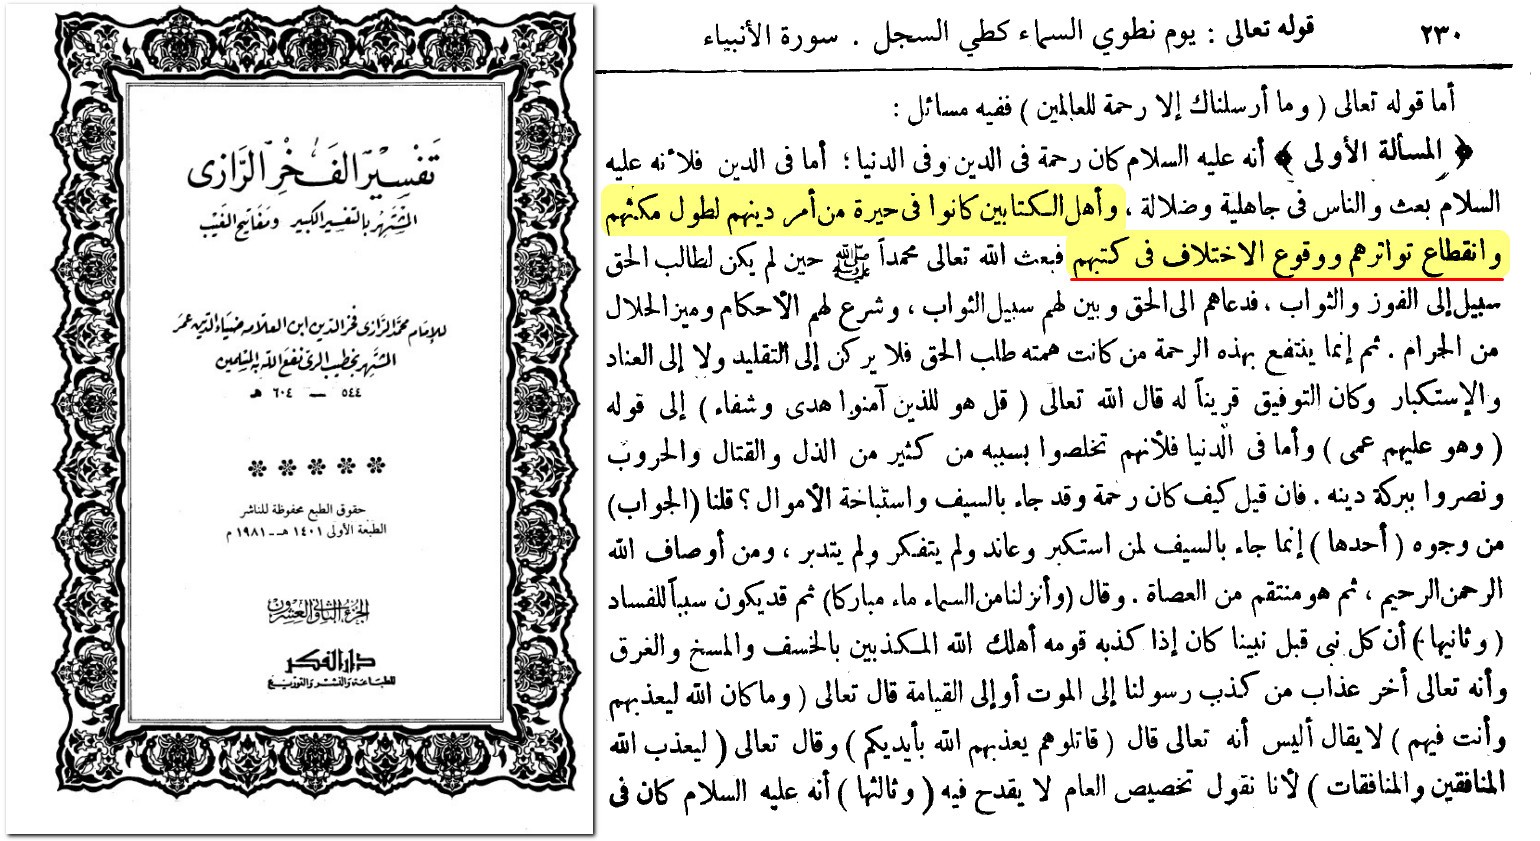 تفسير الفخر الرازى
المشتهر بالتفسير الكبير ومفاتيح الغيب
للإمام محمد الرازى فخر الدين ابن العلامة ضياء الدين عمر
الشتهر بخطيب الرى نفع الله به المسلمين
٥٤٤ — ٦٠٤ هـ
حقوق الطبع محفوظة للناشر
الطبعة الأولى ١٤٠١ هـ - ١٩٨١ م
الجزء الثانى والعشرون
دار الفكر
للطباعة والنشر والتوزيع
٢٣٠ قوله تعالى : يوم نطوي السماء كطي السجل . سورة الأنبياء
أما قوله تعالى ( وما أرسلناك إلا رحمة للعالمين ) ففيه مسائل :
﴿ المسألة الأولى ﴾ أنه عليه السلام كان رحمة فى الدين وفى الدنيا ؛ أما فى الدين فلأنه عليه
السلام بعث والناس فى جاهلية وضلالة ، وأهل الكتابين كانوا فى حيرة من أمر دينهم لطول مكثهم
وانقطاع تواترهم ووقوع الاختلاف فى كتبهم فبعث الله تعالى محمداً ﷺ حين لم يكن لطالب الحق
سبيل إلى الفوز والثواب ، فدعاهم الى الحق وبين لهم سبيل الثواب ، وشرع لهم الأحكام وميز الحلال
من الحرام . ثم إنما ينتفع بهذه الرحمة من كانت همته طلب الحق فلا يركن إلى التقليد ولا إلى العناد
والإستكبار وكان التوفيق قريناً له قال الله تعالى ( قل هو للذين آمنوا هدى وشفاء ) إلى قوله
( وهو عليهم عمى ) وأما فى الدنيا فلأنهم تخلصوا بسببه من كثير من الذل والقتال والحروب
ونصروا ببركة دينه . فان قيل كيف كان رحمة وقد جاء بالسيف واستباحة الأموال ؟ قلنا ( الجواب )
من وجوه ( أحدها ) إنما جاء بالسيف لمن استكبر وعاند ولم يتفكر ولم يتدبر ، ومن أوصاف الله
الرحمن الرحيم ، ثم هو منتقم من العصاة . وقال ( وأنزلنا من السماء ماء مباركا ) ثم قد يكون سبباً للفساد
( وثانيها ) أن كل نبى قبل نبينا كان إذا كذبه قومه أهلك الله المكذبين بالخسف والمسخ والغرق
وأنه تعالى أخر عذاب من كذب رسولنا إلى الموت أو إلى القيامة قال تعالى ( وما كان الله ليعذبهم
وأنت فيهم ) لا يقال أليس أنه تعالى قال ( قاتلوهم يعذبهم الله بأيديكم ) وقال تعالى ( ليعذب الله
المنافقين والمنافقات ) لأنا نقول تخصيص العام لا يقدح فيه ( وثالثها ) أنه عليه السلام كان فى